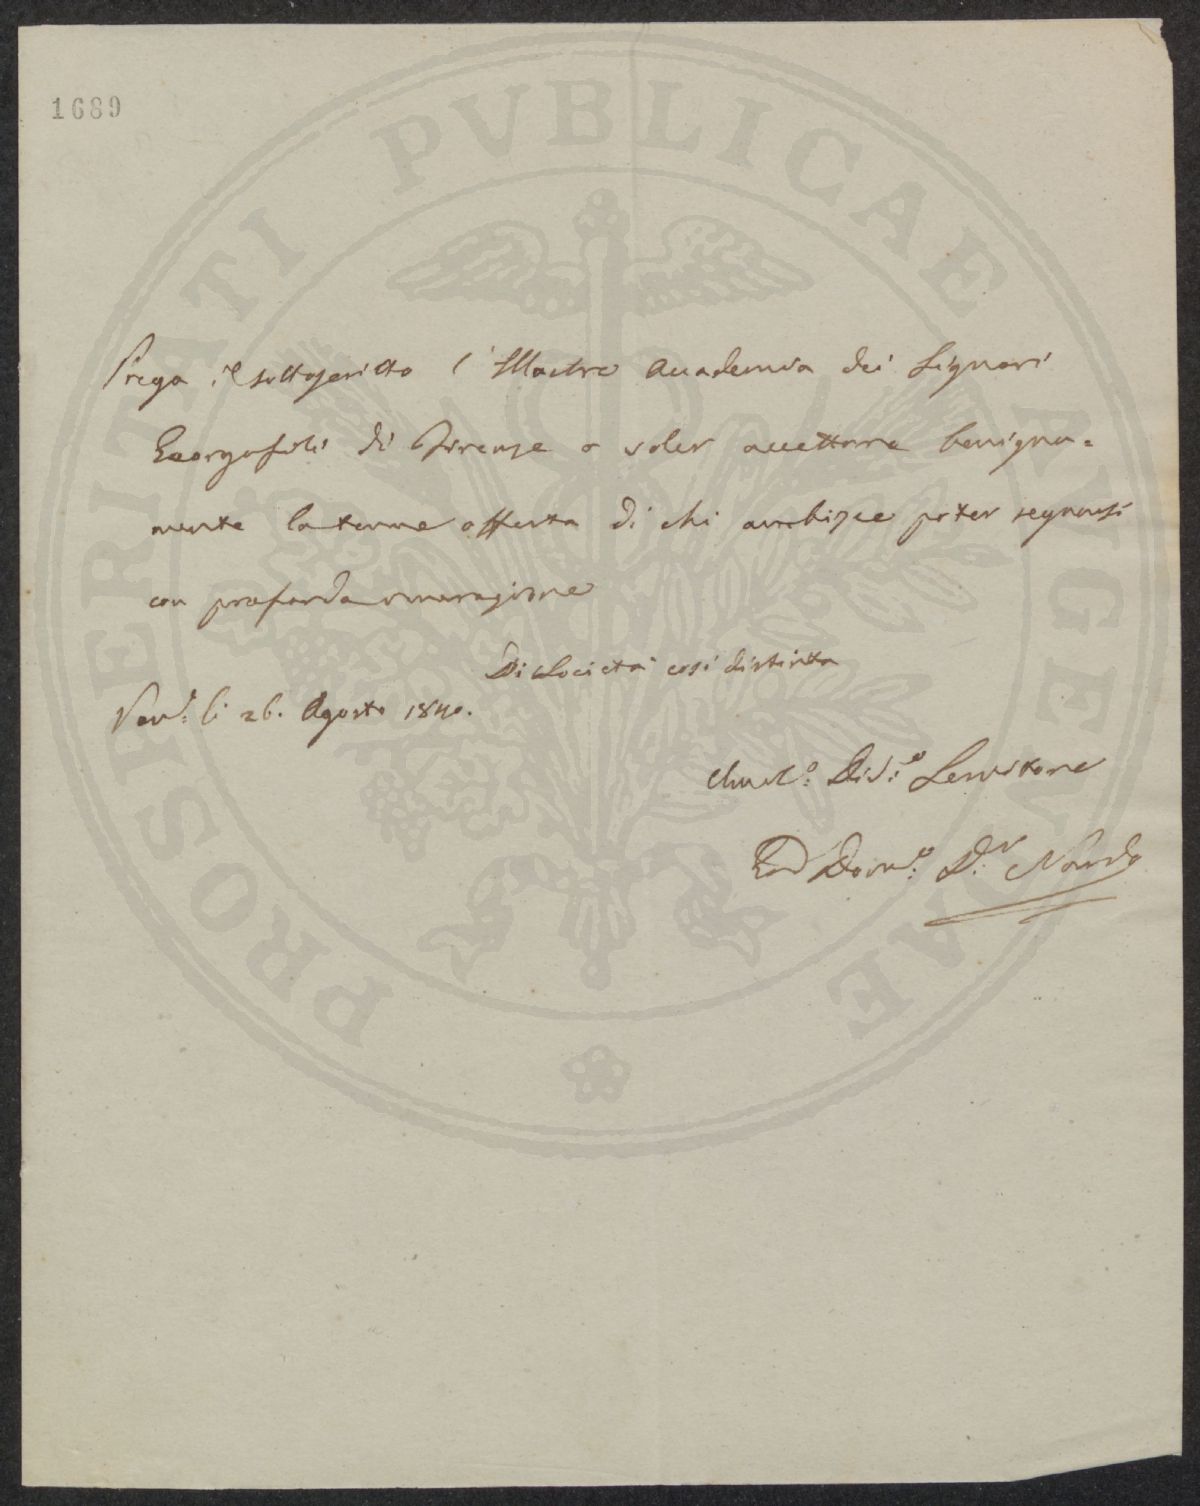 1689
PROSPERITATI PVBLICAE AVGENDAE
Prega il sottoscritto l'Illustre Accademia dei Signori
Georgofili di Firenze a voler accettare benigna=
mente la tenue offerta di chi ambisce poter segnarsi
con profonda venerazione
Di Società così distinta
Ven.a li 26. Agosto 1840.
Umil.o Div.o Servitore
Gio Dom.o D.r Nardo